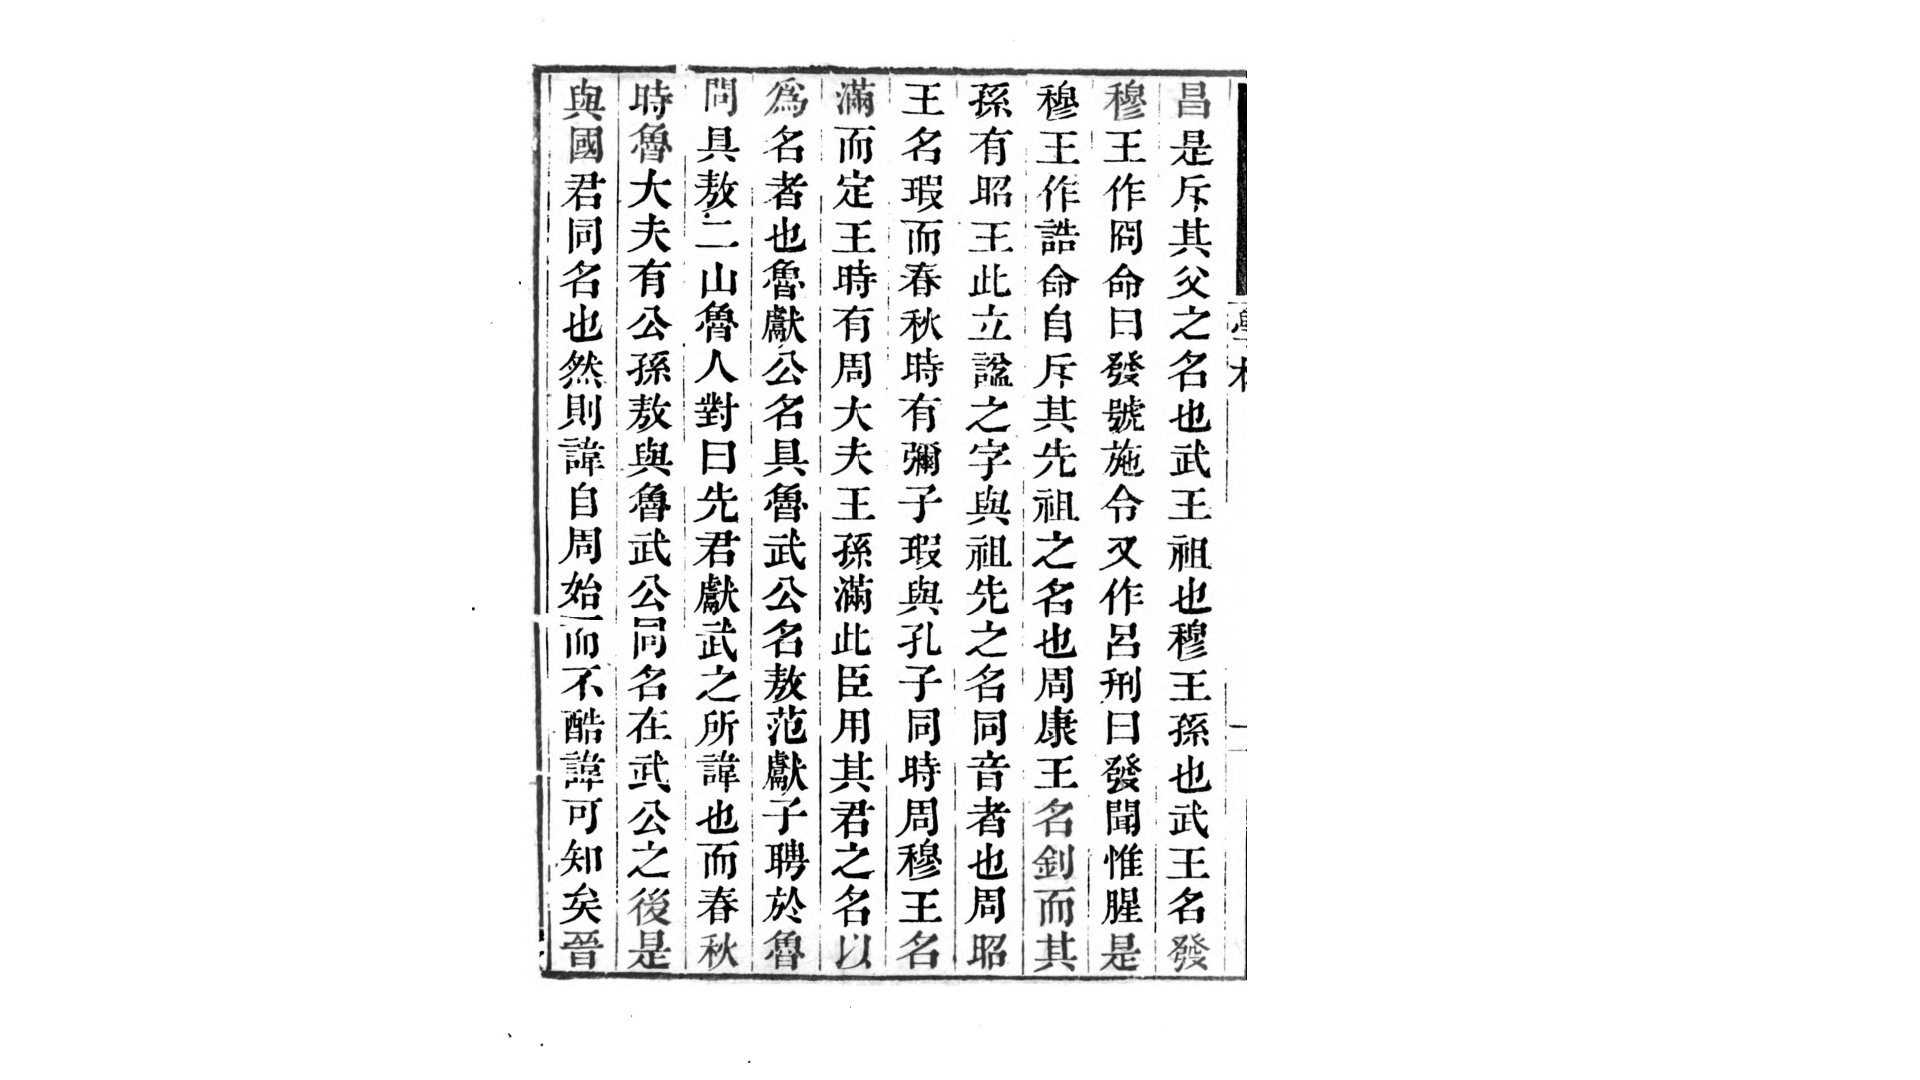 昌是斥其父之名也武王祖也穆王孫也武王名發
穆王作冏命曰發號施令又作呂刑曰發聞惟腥是
穆王作誥命自斥其先祖之名也周康王名釗而其
孫有昭王此立諡之字與祖先之名同音者也周昭
王名瑕而春秋時有彌子瑕與孔子同時周穆王名
滿而定王時有周大夫王孫滿此臣用其君之名以
爲名者也魯獻公名具魯武公名敖范獻子聘於魯
問具敖二山魯人對曰先君獻武之所諱也而春秋
時魯大夫有公孫敖與魯武公同名在武公之後是
與國君同名也然則諱自周始而不酷諱可知矣晉